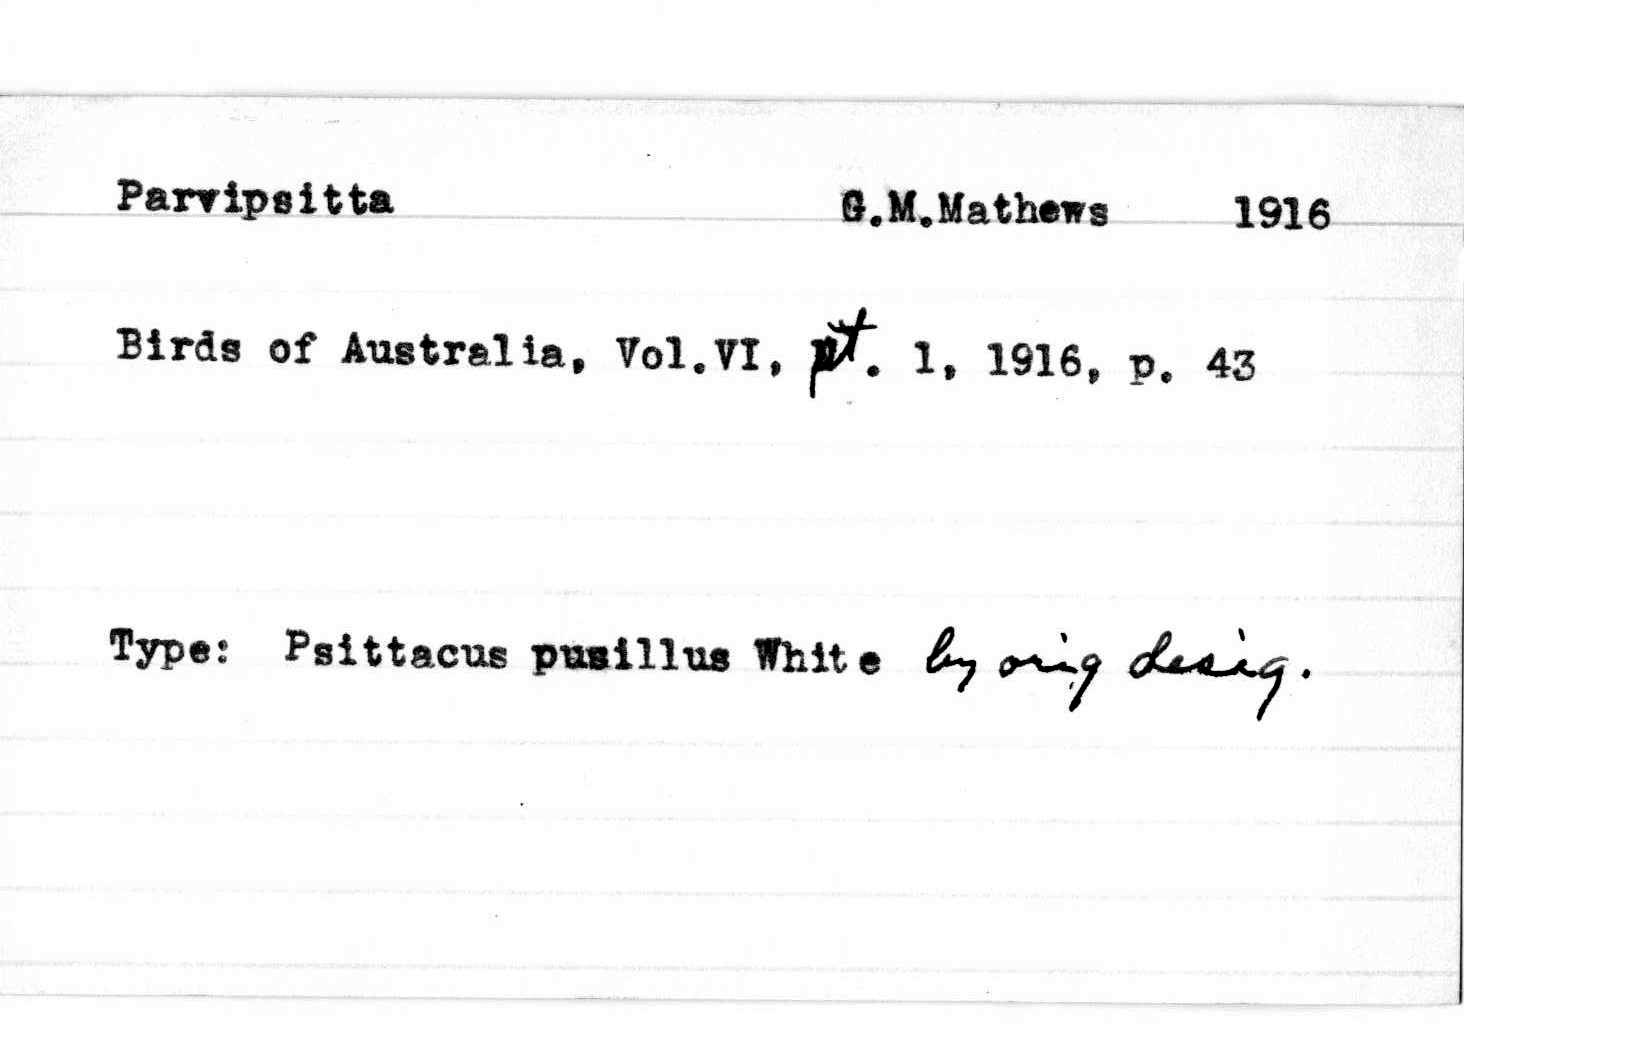 Parvipsitta G.M.Mathews 1916
Birds of Australia, Vol.VI, pt. 1, 1916, p. 43
Type: Psittacus pusillus White by orig desig.